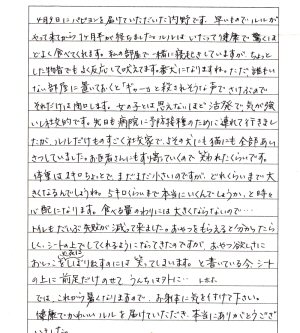 4月9日にパピヨンを届けていただいた内野です。早いものでルルが
やって来てから1ヶ月半が経ちましたルルはいたって健康で驚くほ
どよく食べてくれます。私の部屋で一緒に寝起きしていますが、ちょっと
した物音でもよく反応して吠えます。番犬になりますね。ただ誰もい
ない部屋に置いておくと「ギャーッ」と殺されそうな声でさけぶので
それだけは閉口します。女の子とは思えないほど活発で気が強
いし社交的です。先日も病院に予防接種のために連れて行きまし
たが、ルルだけものすごく社交家で、よその犬にも猫にも全部あい
さつしていました。お医者さんにもすり寄っていくので笑われたくらいです。
体重は3キロちょっとで、まだまだ小さいのですが、どれくらいまで大
きくなるんでしょうね。5キロくらいまで本当にいくんでしょうか、と時々
心配になります。食べる量のわりには大きくならないので…
トイレもだいぶ失敗が減って来ました。おやつをもらえると分かったら
しく、シートの上でしてくれるようになってきたのですが、おやつ欲しさに
おしっこをしぼり出すのには笑ってしまいます。と書いている今シート
の上に前足だけのせてうんちはヲトに… トホホ
では、これから暑くなりますので、お身体に気を付けて下さい。
健康でかわいいルルを届けていただき、本当にありがとうござ
いました。